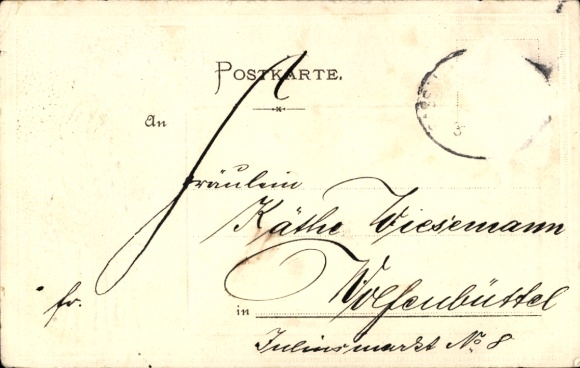 POSTKARTE.
An
Fräulein
Käthe Wiesemann
fr.
in Wolfenbüttel
Juliusmarkt No 8